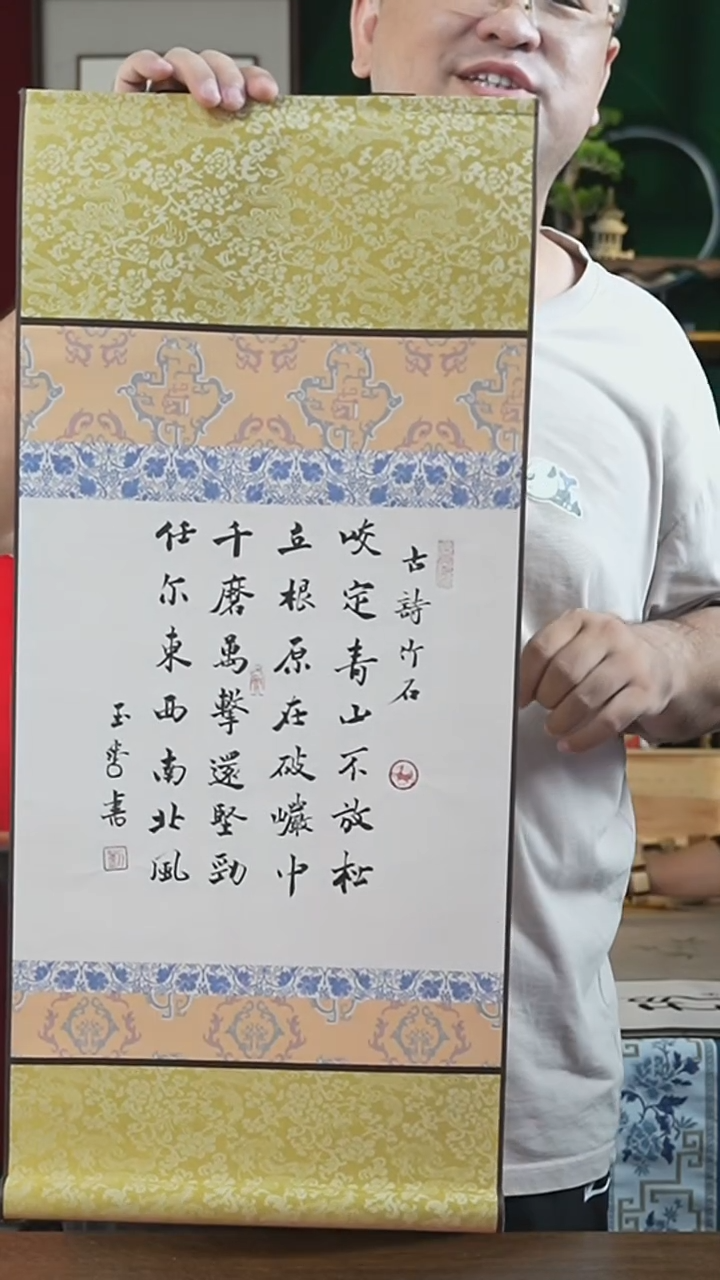 古詩竹石
咬定青山不放松
立根原在破巗中
千磨萬擊還堅勁
任尔東西南北風
玉 書